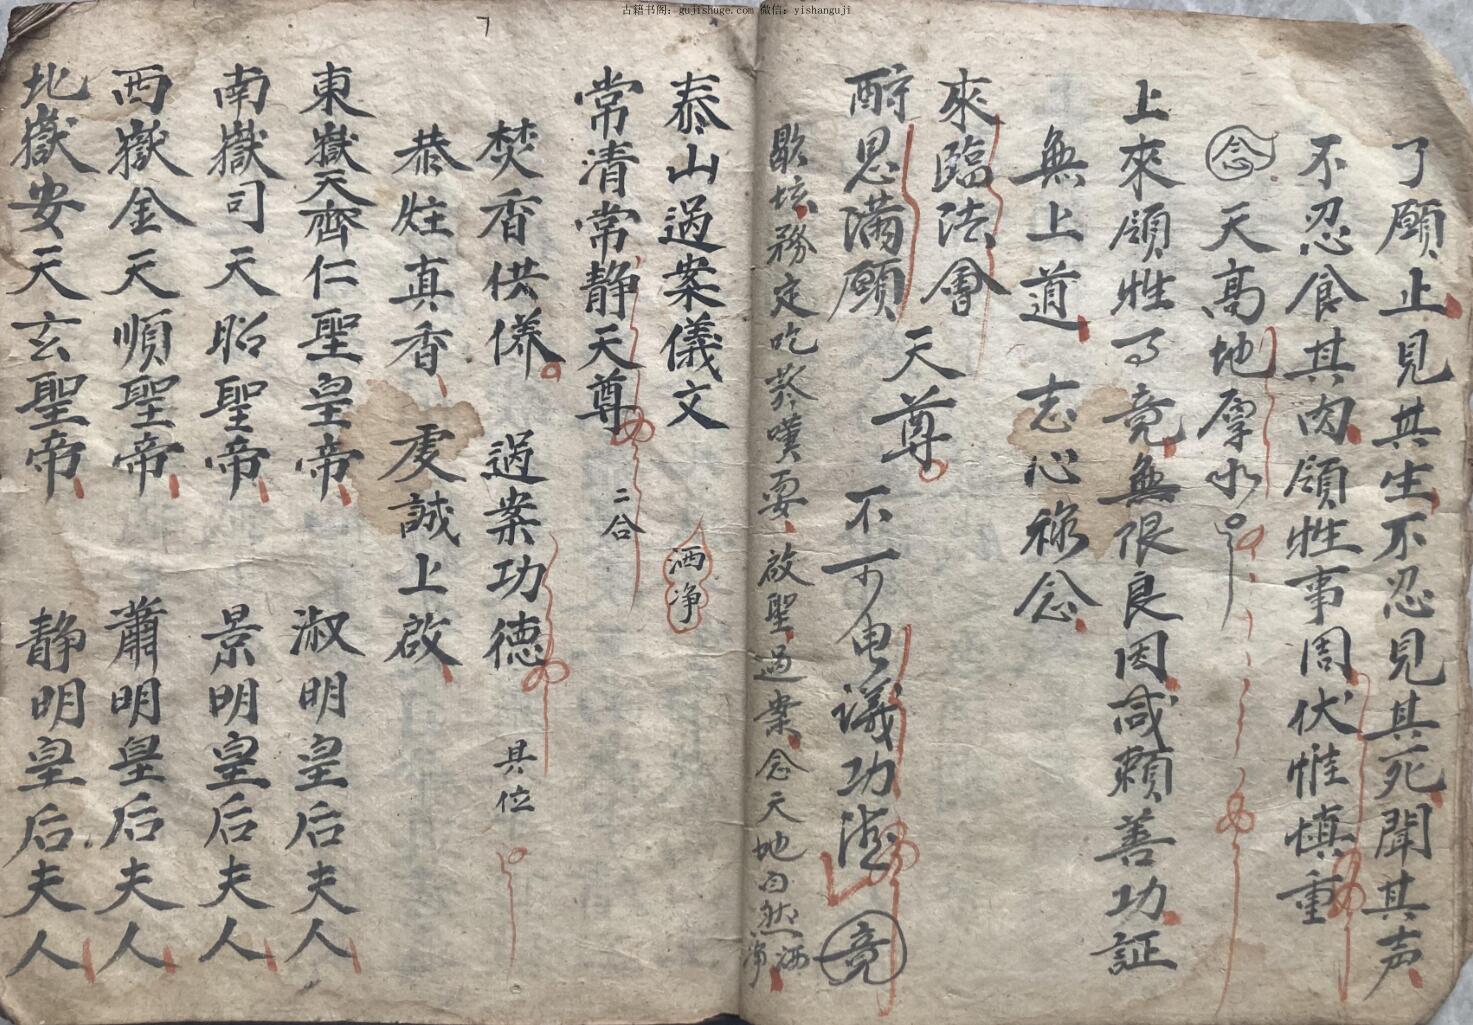 古籍书阁: gujishuge.com 微信: yishanguji
了願止見其生不忍見其死聞其声
不忍食其肉領牲事周伏惟慎重
念 天高地厚水
上來領牲了竟無限良因咸賴善功証
無上道 志心祢念
來臨法會
酧恩滿願 天尊 不可思議功德 竟
歇坛務定吃 嘆 啟聖過案念天地自然洒净
泰山過案儀文 洒净
常清常静天尊 二合
焚香供养 過案功德 具位
恭炷真香 虔誠上啟
東嶽天齊仁聖皇帝 淑明皇后夫人
南嶽司天昭聖帝 景明皇后夫人
西嶽金天順聖帝 蕭明皇后夫人
北嶽安天玄聖帝 静明皇后夫人